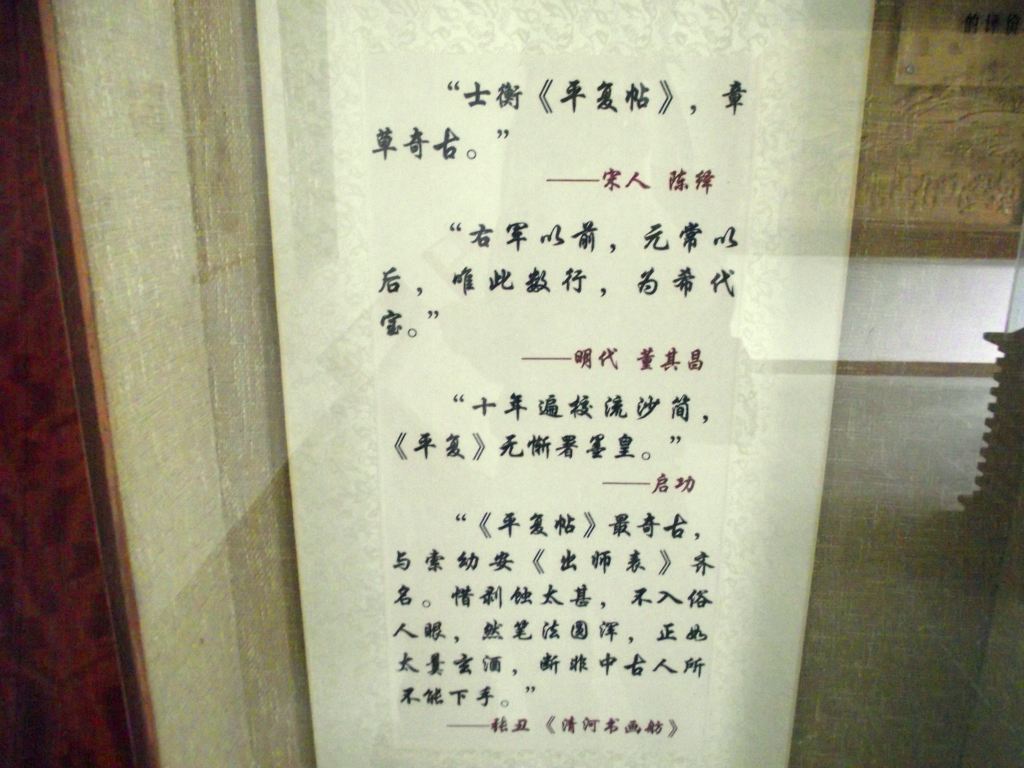 的评价
“士衡《平复帖》，章
草奇古。”
——宋人 陈绎
“右军以前，元常以
后，唯此数行，为希代
宝。”
——明代 董其昌
“十年遍校流沙简，
《平复》无惭署墨皇。”
——启功
“《平复帖》最奇古，
与索幼安《出师表》齐
名。惜剥蚀太甚，不入俗
人眼，然笔法圆浑，正如
太羹玄酒，断非中古人所
不能下手。”
——张丑《清河书画舫》